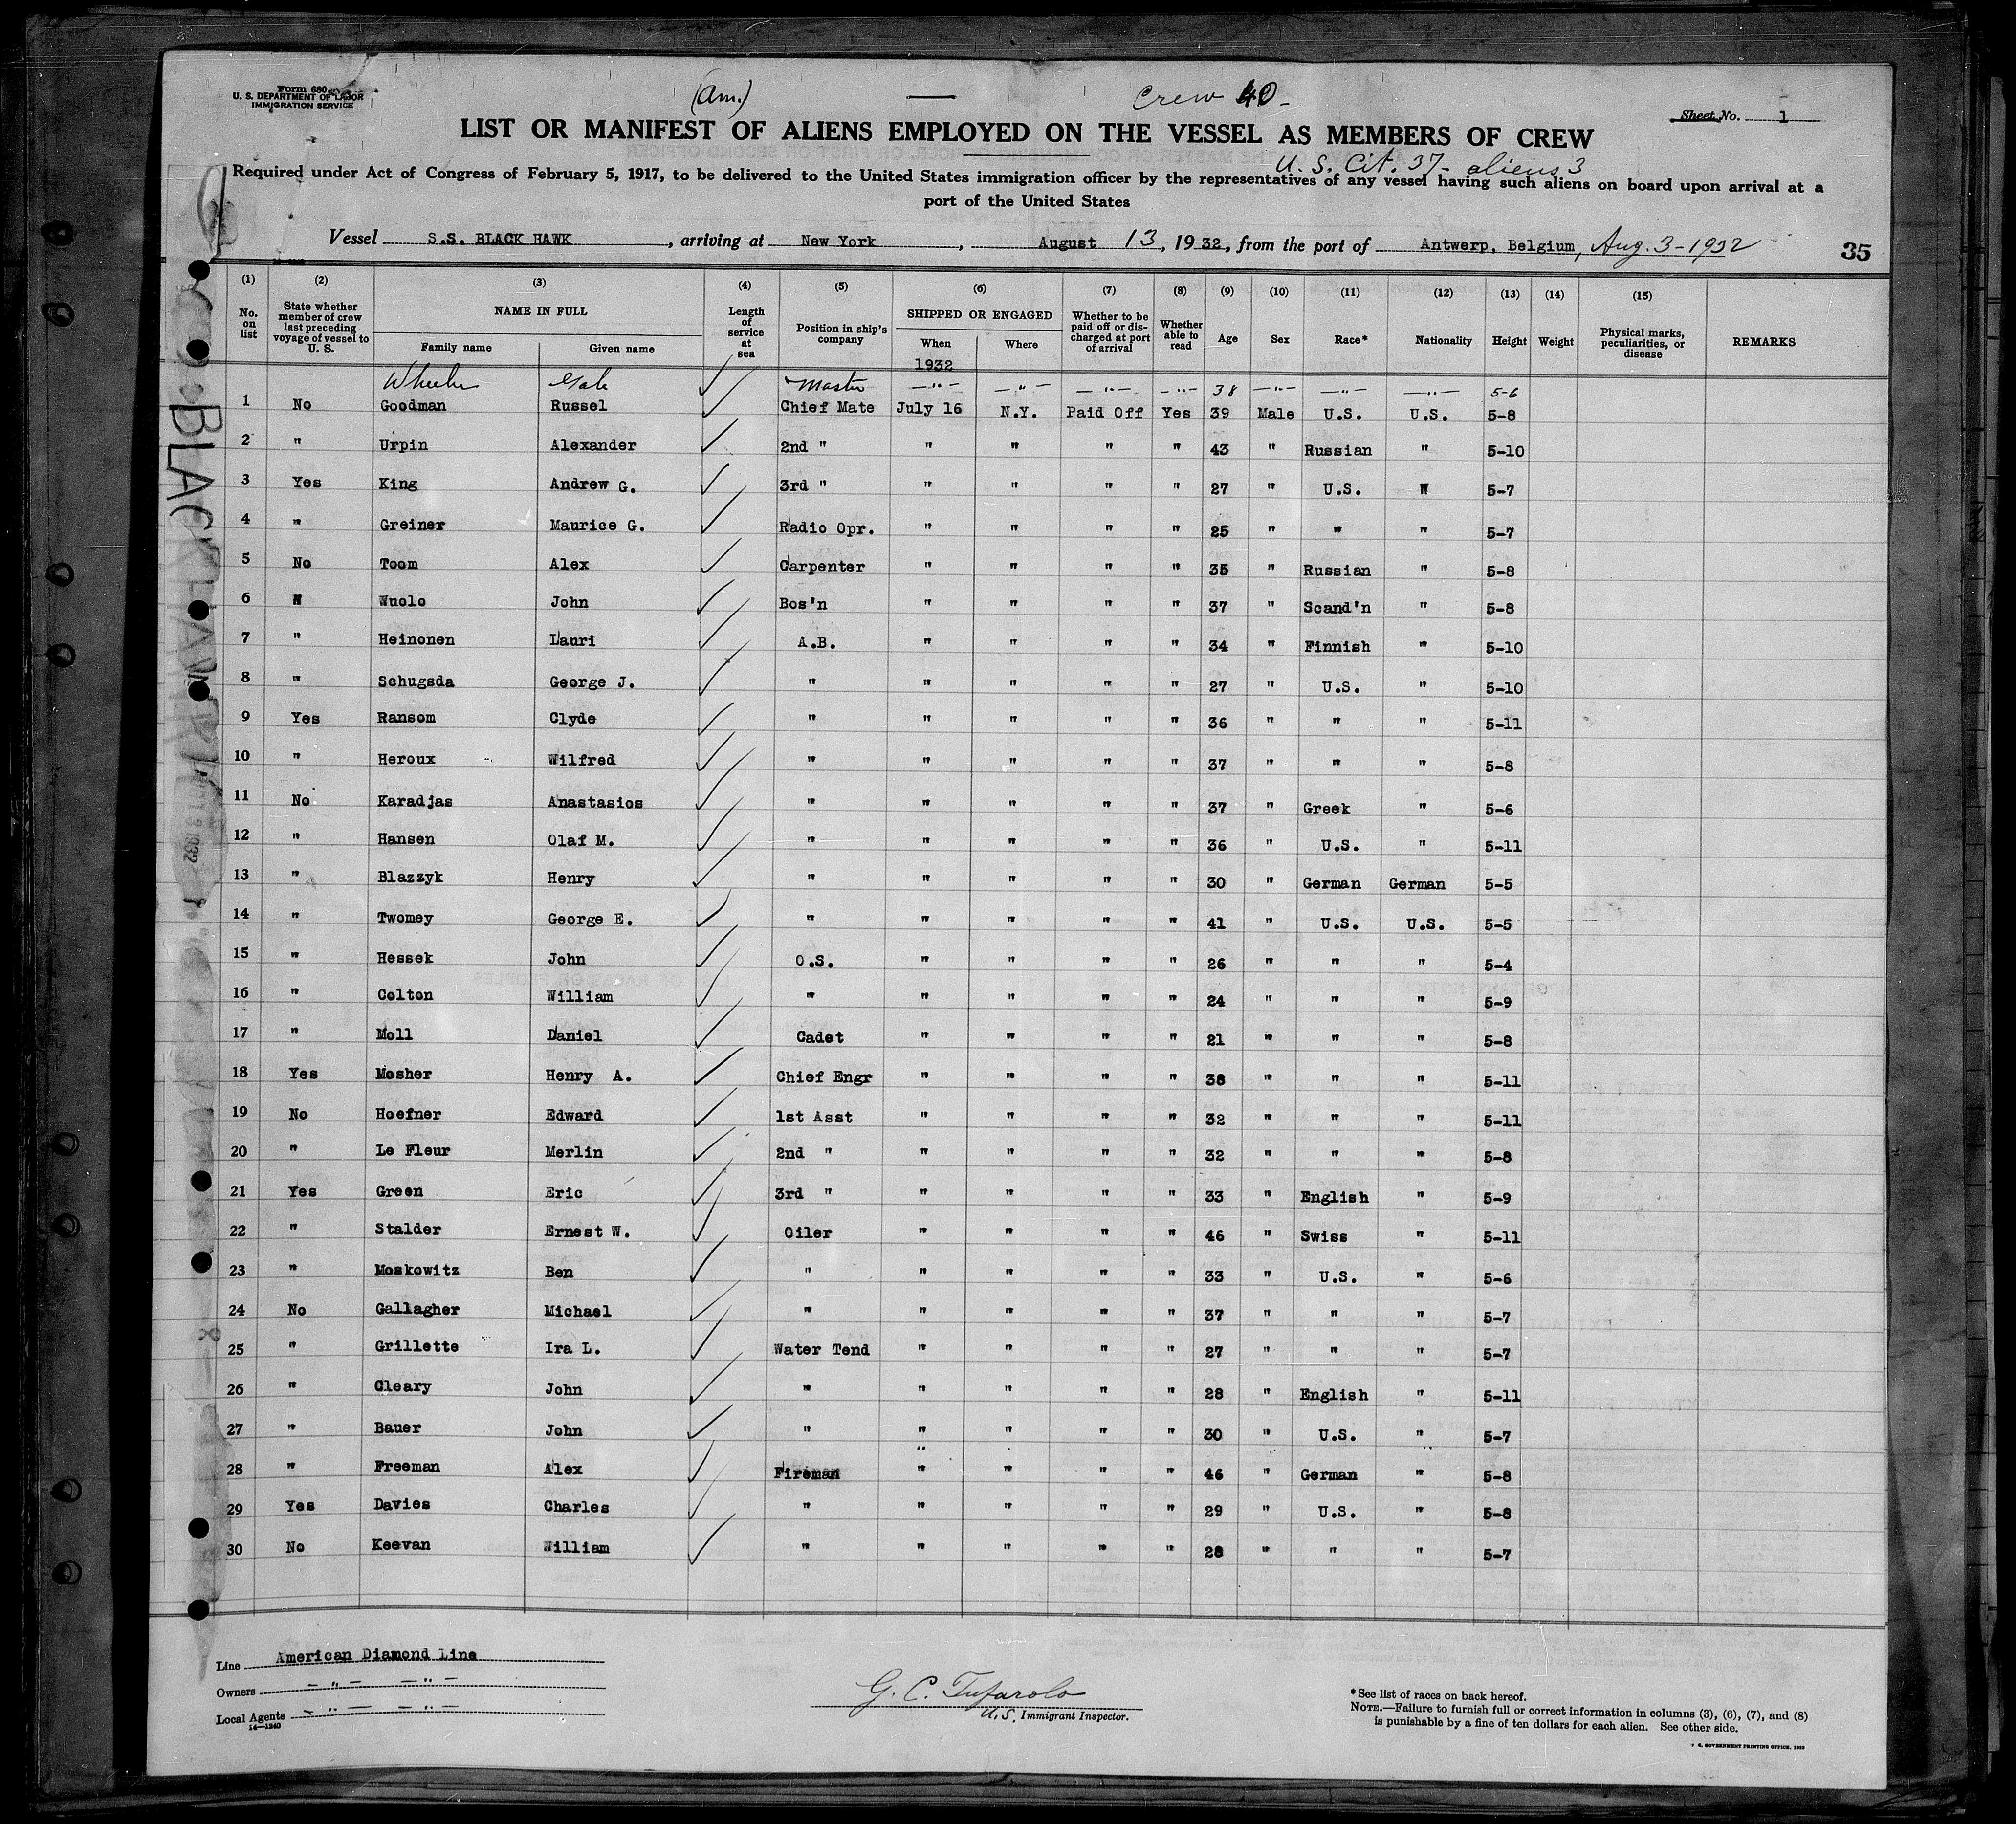 Form 680
U. S. DEPARTMENT OF LABOR
IMMIGRATION SERVICE
(Am.)
Crew 40
Sheet No. 1
LIST OR MANIFEST OF ALIENS EMPLOYED ON THE VESSEL AS MEMBERS OF CREW
U. S. Cit. 37 - aliens 3
Required under Act of Congress of February 5, 1917, to be delivered to the United States immigration officer by the representatives of any vessel having such aliens on board upon arrival at a
port of the United States
Vessel S.S. BLACK HAWK, arriving at New York, August 13, 1932, from the port of Antwerp, Belgium, Aug. 3-1932
35
(1) (2) (3) (4) (5) (6) (7) (8) (9) (10) (11) (12) (13) (14) (15)
No. on list | State whether member of crew last preceding voyage of vessel to U. S. | NAME IN FULL | Family name | Given name | Length of service at sea | Position in ship's company | SHIPPED OR ENGAGED | When | Where | Whether to be paid off or discharged at port of arrival | Whether able to read | Age | Sex | Race* | Nationality | Height | Weight | Physical marks, peculiarities, or disease | REMARKS
1932
Wheeler Gale Master " " " " 38 " " " 5-6
1 No Goodman Russel Chief Mate July 16 N.Y. Paid Off Yes 39 Male U.S. U.S. 5-8
2 " Urpin Alexander 2nd " " " " " 43 " Russian " 5-10
3 Yes King Andrew G. 3rd " " " " " 27 " U.S. " 5-7
4 " Greiner Maurice G. Radio Opr. " " " " 25 " " " 5-7
5 No Toom Alex Carpenter " " " " 35 " Russian " 5-8
6 " Wuolo John Bos'n " " " " 37 " Scand'n " 5-8
7 " Heinonen Lauri A.B. " " " " 34 " Finnish " 5-10
8 " Schugsda George J. " " " " " 27 " U.S. " 5-10
9 Yes Ransom Clyde " " " " " 36 " " " 5-11
10 " Heroux Wilfred " " " " " 37 " " " 5-8
11 No Karadjas Anastasios " " " " " 37 " Greek " 5-6
12 " Hansen Olaf M. " " " " " 36 " U.S. " 5-11
13 " Blazzyk Henry " " " " " 30 " German German 5-5
14 " Twomey George E. " " " " " 41 " U.S. U.S. 5-5
15 " Hessek John O.S. " " " " 26 " " " 5-4
16 " Colton William " " " " " 24 " " " 5-9
17 " Moll Daniel Cadet " " " " 21 " " " 5-8
18 Yes Mosher Henry A. Chief Engr " " " " 38 " " " 5-11
19 No Hoefner Edward 1st Asst " " " " 32 " " " 5-11
20 " Le Fleur Merlin 2nd " " " " " 32 " " " 5-8
21 Yes Green Eric 3rd " " " " " 33 " English " 5-9
22 " Stalder Ernest W. Oiler " " " " 46 " Swiss " 5-11
23 " Moskowitz Ben " " " " " 33 " U.S. " 5-6
24 No Gallagher Michael " " " " " 37 " " " 5-7
25 " Grillette Ira L. Water Tend " " " " 27 " " " 5-7
26 " Cleary John " " " " " 28 " English " 5-11
27 " Bauer John " " " " " 30 " U.S. " 5-7
28 " Freeman Alex Fireman " " " " 46 " German " 5-8
29 Yes Davies Charles " " " " " 29 " U.S. " 5-8
30 No Keevan William " " " " " 28 " " " 5-7
Line American Diamond Line
Owners " "
Local Agents " "
14—1240
G. C. Tufarolo
U.S. Immigrant Inspector.
*See list of races on back hereof.
NOTE.—Failure to furnish full or correct information in columns (3), (6), (7), and (8)
is punishable by a fine of ten dollars for each alien. See other side.
GOVERNMENT PRINTING OFFICE